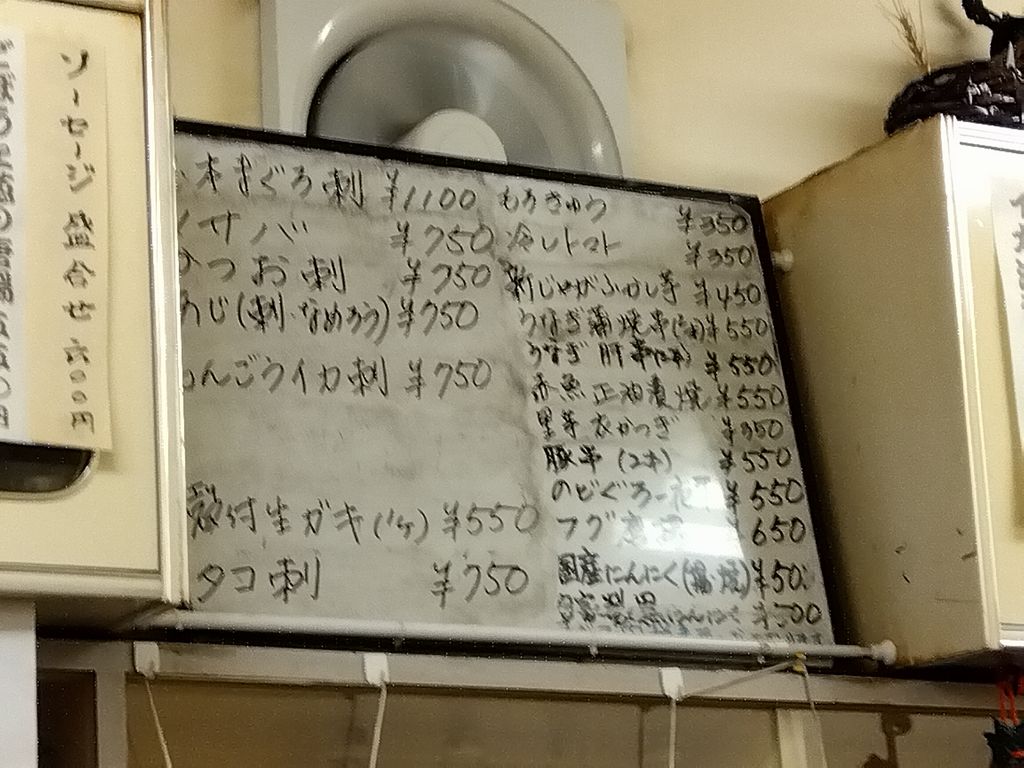 ソーセージ 盛合せ 六〇〇円
本まぐろ刺 ¥1100
サバ ¥750
かつお刺 ¥750
あじ(刺・なめろう) ¥750
もんごうイカ刺 ¥750
殻付生ガキ(1ケ) ¥550
タコ刺 ¥750
もろきゅう ¥350
冷しトマト ¥350
新じゃがふかし芋 ¥450
うなぎ蒲焼串(2本) ¥550
うなぎ肝串(2本) ¥550
赤魚 正油麹焼 ¥550
里芋衣かつぎ ¥350
豚串(2本) ¥550
のどぐろ一夜干 ¥550
フグ ¥650
国産にんにく(揚・焼) ¥50
¥500